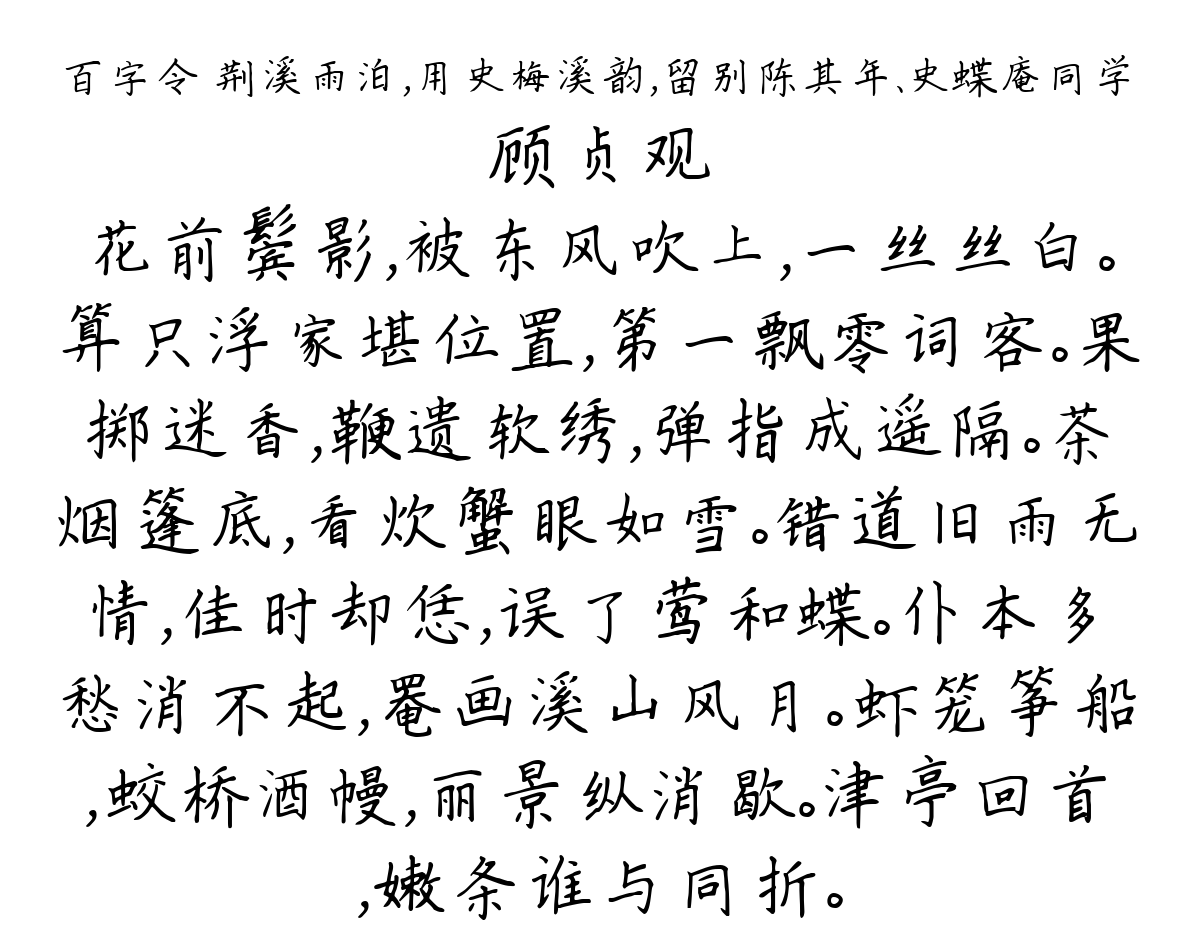 百字令 荆溪雨泊,用史梅溪韵,留别陈其年、史蝶庵同学
顾贞观
花前鬓影,被东风吹上,一丝丝白。
算只浮家堪位置,第一飘零词客。果
掷迷香,鞭遗软绣,弹指成遥隔。茶
烟篷底,看炊蟹眼如雪。错道旧雨无
情,佳时却恁,误了莺和蝶。仆本多
愁消不起,罨画溪山风月。虾笼筝船
,蛟桥酒幔,丽景纵消歇。津亭回首
,嫩条谁与同折。